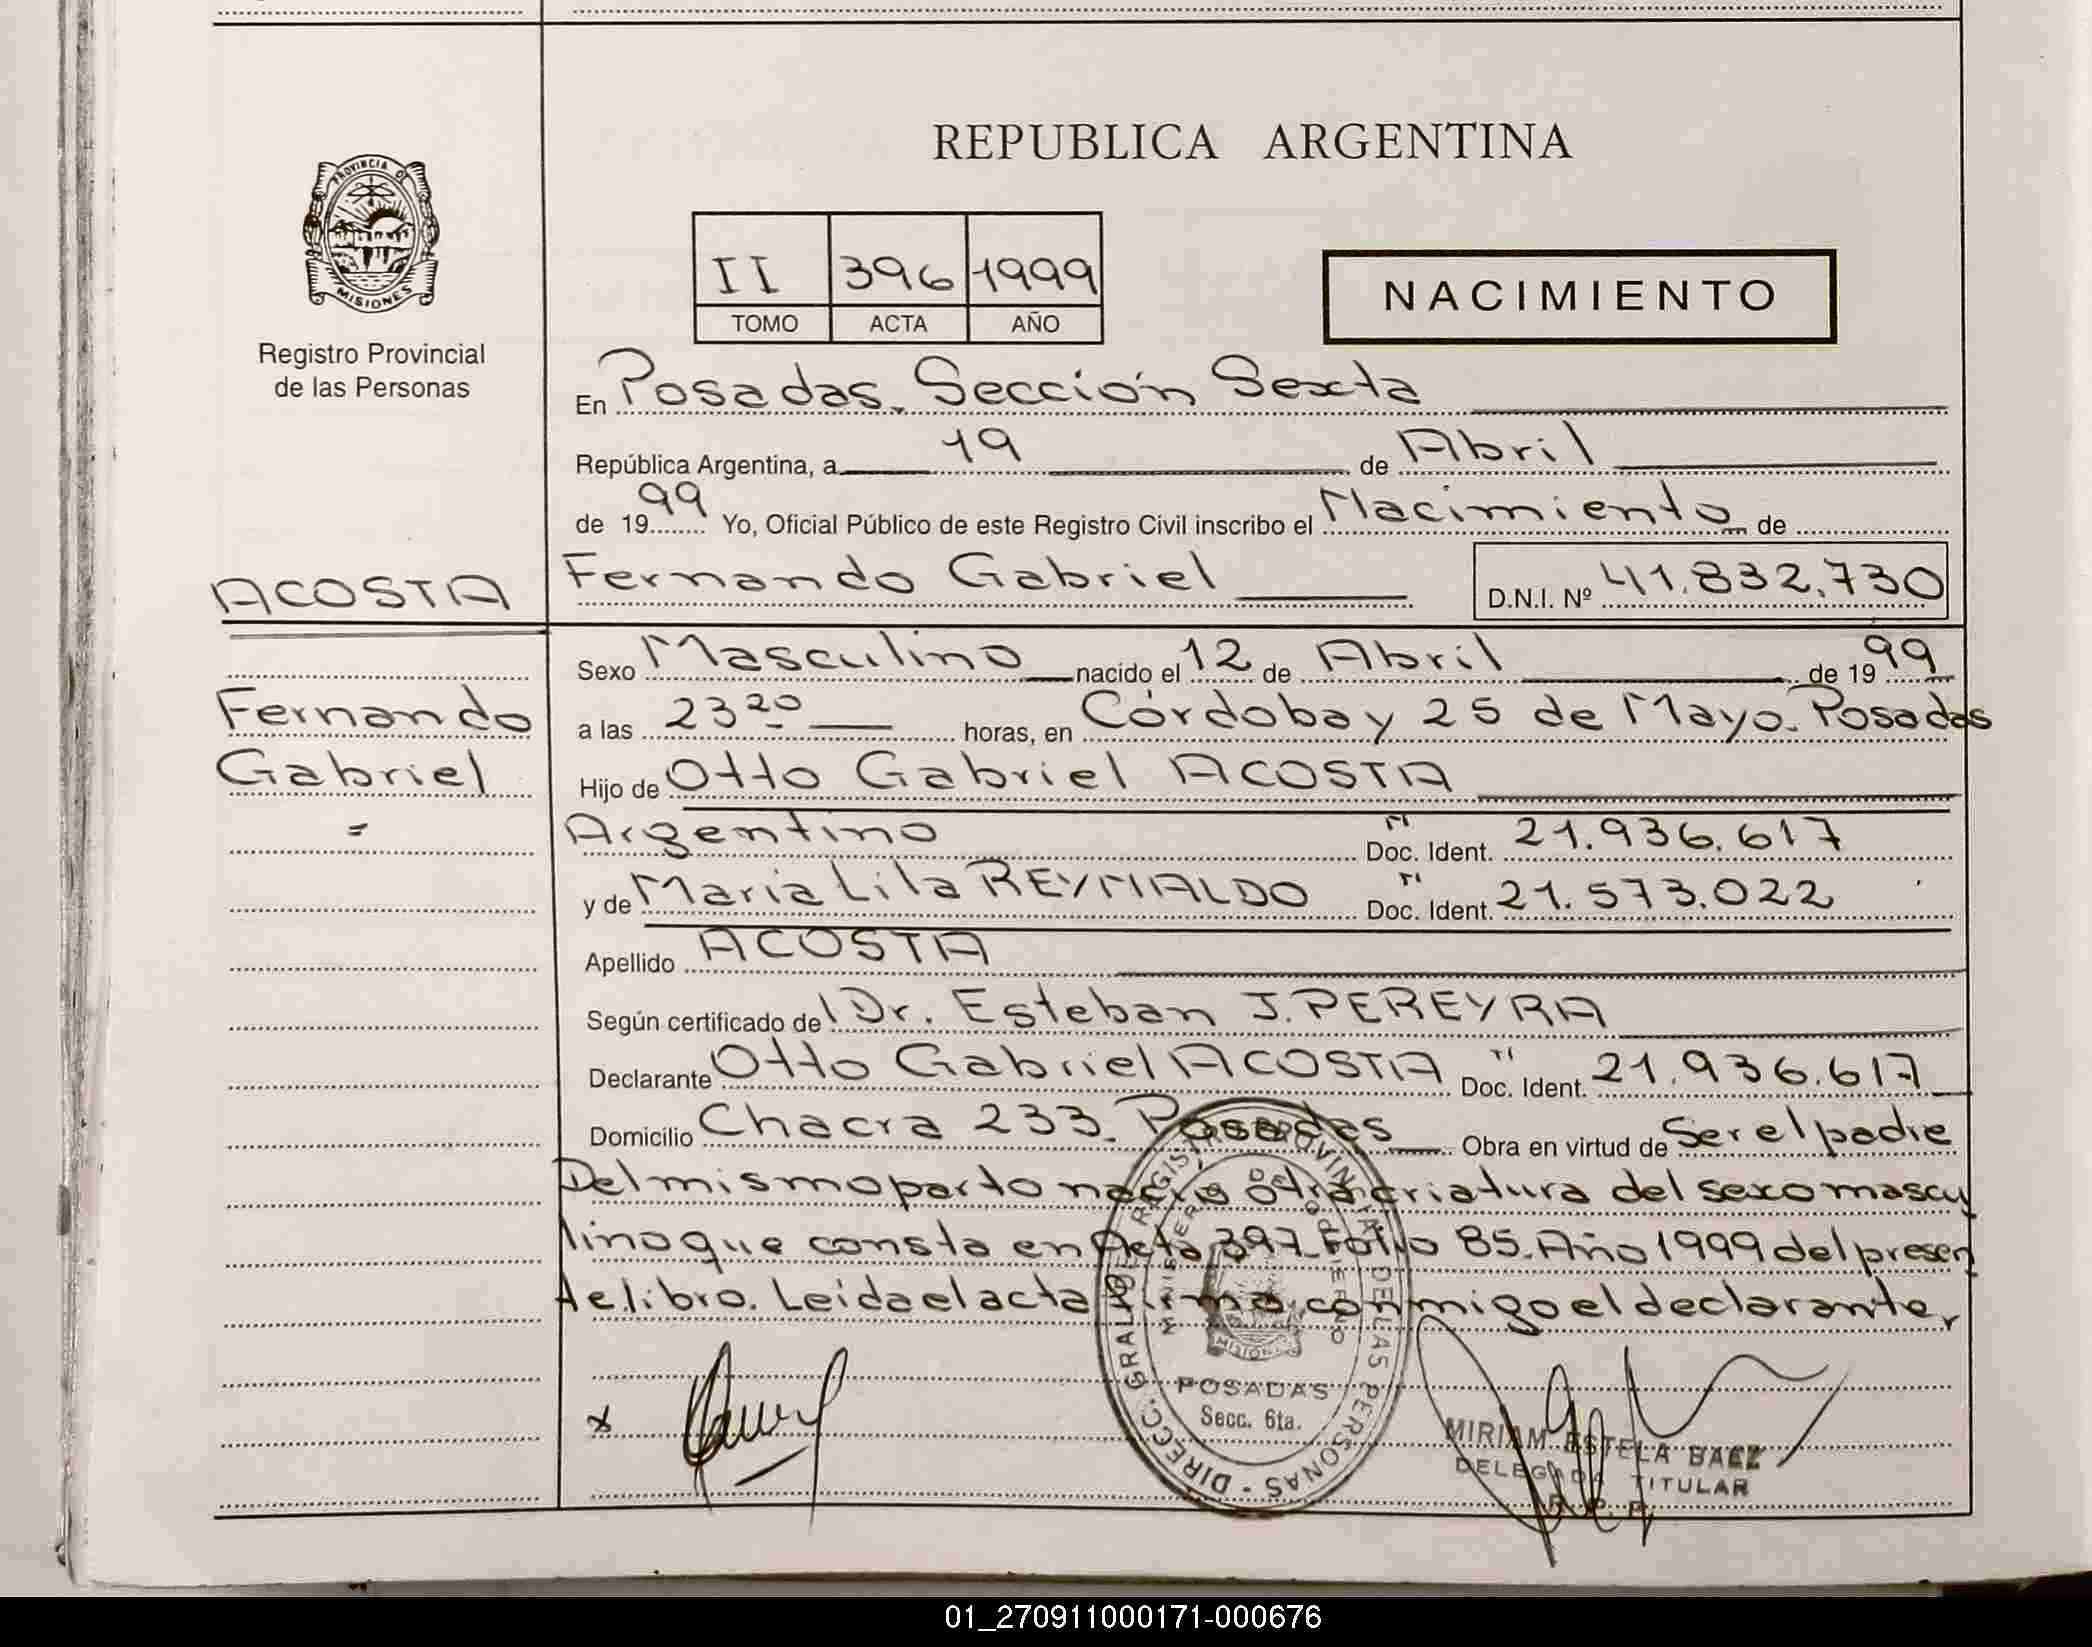 REPUBLICA ARGENTINA
PROVINCIA D
MISIONES
Registro Provincial
de las Personas
II 396 1999
TOMO ACTA AÑO
NACIMIENTO
En Posadas. Sección Sexta
República Argentina, a 19 de Abril
de 1999 Yo, Oficial Público de este Registro Civil inscribo el Nacimiento de
ACOSTA
Fernando Gabriel D.N.I. Nº 41.832.730
Sexo Masculino nacido el 12 de Abril de 1999
Fernando
Gabriel
a las 23 20 horas, en Córdoba y 25 de Mayo. Posadas
Hijo de Otto Gabriel ACOSTA
Argentino Doc. Ident. 21.936.617
y de Maria Lila REYNALDO Doc. Ident. 21.573.022
Apellido ACOSTA
Según certificado del Dr. Esteban J. PEREYRA
Declarante Otto Gabriel ACOSTA Doc. Ident. 21.936.617
Domicilio Chacra 233. Posadas Obra en virtud de Ser el padre
Del mismo parto nacio otra criatura del sexo mascu
lino que consta en Acta 397 Folio 85. Año 1999 del presen
te libro. Leida el acta firma conmigo el declarante,
DIRECC. GRAL. DE REGISTRO PROVINCIAL DE LAS PERSONAS
MINISTERIO DE GOBIERNO
MISIONES
POSADAS
Secc. 6ta.
MIRIAM ESTELA BAEZ
DELEGADA TITULAR
R. P. P.
01_270911000171-000676